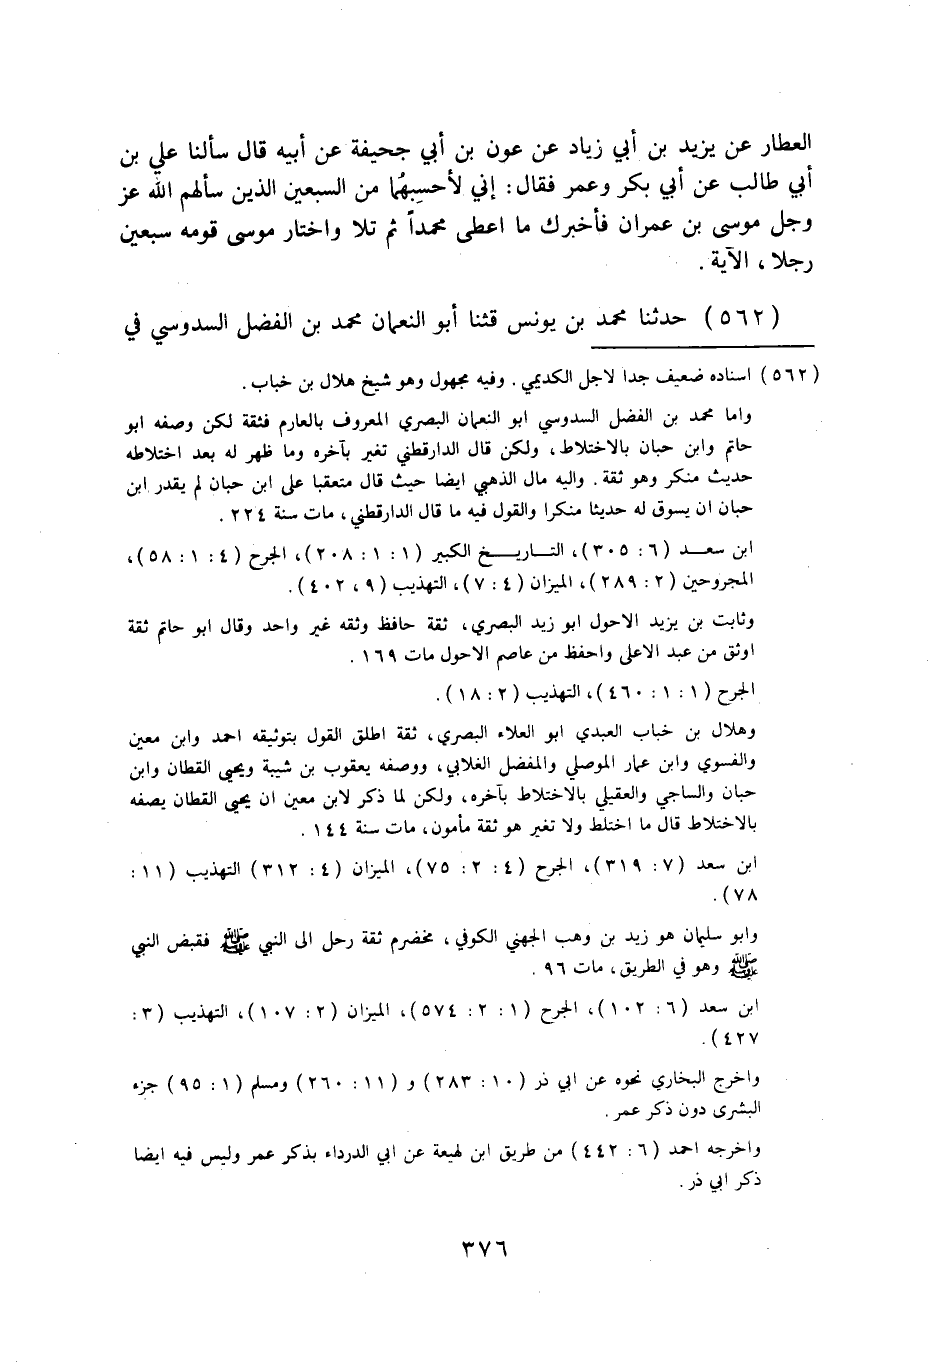 العطار عن يزيد بن أبي زياد عن عون بن أبي جحيفة عن أبيه قال سألنا علي بن
أبي طالب عن أبي بكر وعمر فقال: إني لأحسِبهُما من السبعين الذين سألهم الله عز
وجل موسى بن عمران فأخبرك ما اعطى محمداً ثم تلا واختار موسى قومه سبعين
رجلا، الآية.
(٥٦٢) حدثنا محمد بن يونس قثنا أبو النعمان محمد بن الفضل السدوسي في
(٥٦٢) اسناده ضعيف جدا لاجل الكديمي. وفيه مجهول وهو شيخ هلال بن خباب.
واما محمد بن الفضل السدوسي ابو النعمان البصري المعروف بالعارم فثقة لكن وصفه ابو
حاتم وابن حبان بالاختلاط، ولكن قال الدارقطني تغير بآخره وما ظهر له بعد اختلاطه
حديث منكر وهو ثقة. واليه مال الذهبي ايضا حيث قال متعقبا على ابن حبان لم يقدر ابن
حبان ان يسوق له حديثا منكرا والقول فيه ما قال الدارقطني، مات سنة ٢٢٤.
ابن سعـد (٦: ٣٠٥)، التـاريـخ الكبير (١: ١: ٢٠٨)، الجرح (٤: ١: ٥٨)،
المجروحين (٢: ٢٨٩)، الميزان (٤: ٧)، التهذيب (٩، ٤٠٢).
وثابت بن يزيد الاحول ابو زيد البصري، ثقة حافظ وثقه غير واحد وقال ابو حاتم ثقة
اوثق من عبد الاعلى واحفظ من عاصم الاحول مات ١٦٩.
الجرح (١: ١: ٤٦٠)، التهذيب (٢: ١٨).
وهلال بن خباب العبدي ابو العلاء البصري، ثقة اطلق القول بتوثيقه احمد وابن معين
والفسوي وابن عمار الموصلي والمفضل الغلابي، ووصفه يعقوب بن شيبة ويحيى القطان وابن
حبان والساجي والعقيلي بالاختلاط بآخره، ولكن لما ذكر لابن معين ان يحيى القطان يصفه
بالاختلاط قال ما اختلط ولا تغير هو ثقة مأمون، مات سنة ١٤٤.
ابن سعد (٧: ٣١٩)، الجرح (٤: ٢: ٧٥)، الميزان (٤: ٣١٢) التهذيب (١١:
٧٨).
وابو سليمان هو زيد بن وهب الجهني الكوفي، مخضرم ثقة رحل الى النبي ﷺ فقبض النبي
ﷺ وهو في الطريق، مات ٩٦.
ابن سعد (٦: ١٠٢)، الجرح (١: ٢: ٥٧٤)، الميزان (٢: ١٠٧)، التهذيب (٣:
٤٢٧).
واخرج البخاري نحوه عن ابي ذر (١٠: ٢٨٣) و (١١: ٢٦٠) ومسلم (١: ٩٥) جزء
البشرى دون ذكر عمر.
واخرجه احمد (٦: ٤٤٢) من طريق ابن لهيعة عن ابي الدرداء بذكر عمر وليس فيه ايضا
ذكر ابي ذر.
٣٧٦